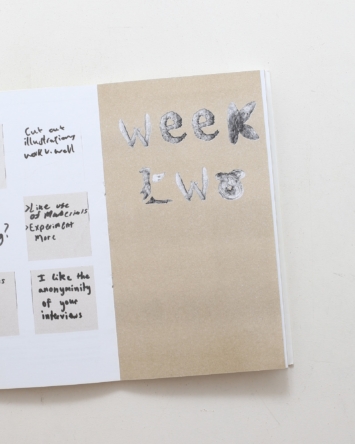 Cut out
illustrations
work well
g?
>Like use
of Materials
>Experiment
More
I like the
anonyminity
of your
interviews
week
two